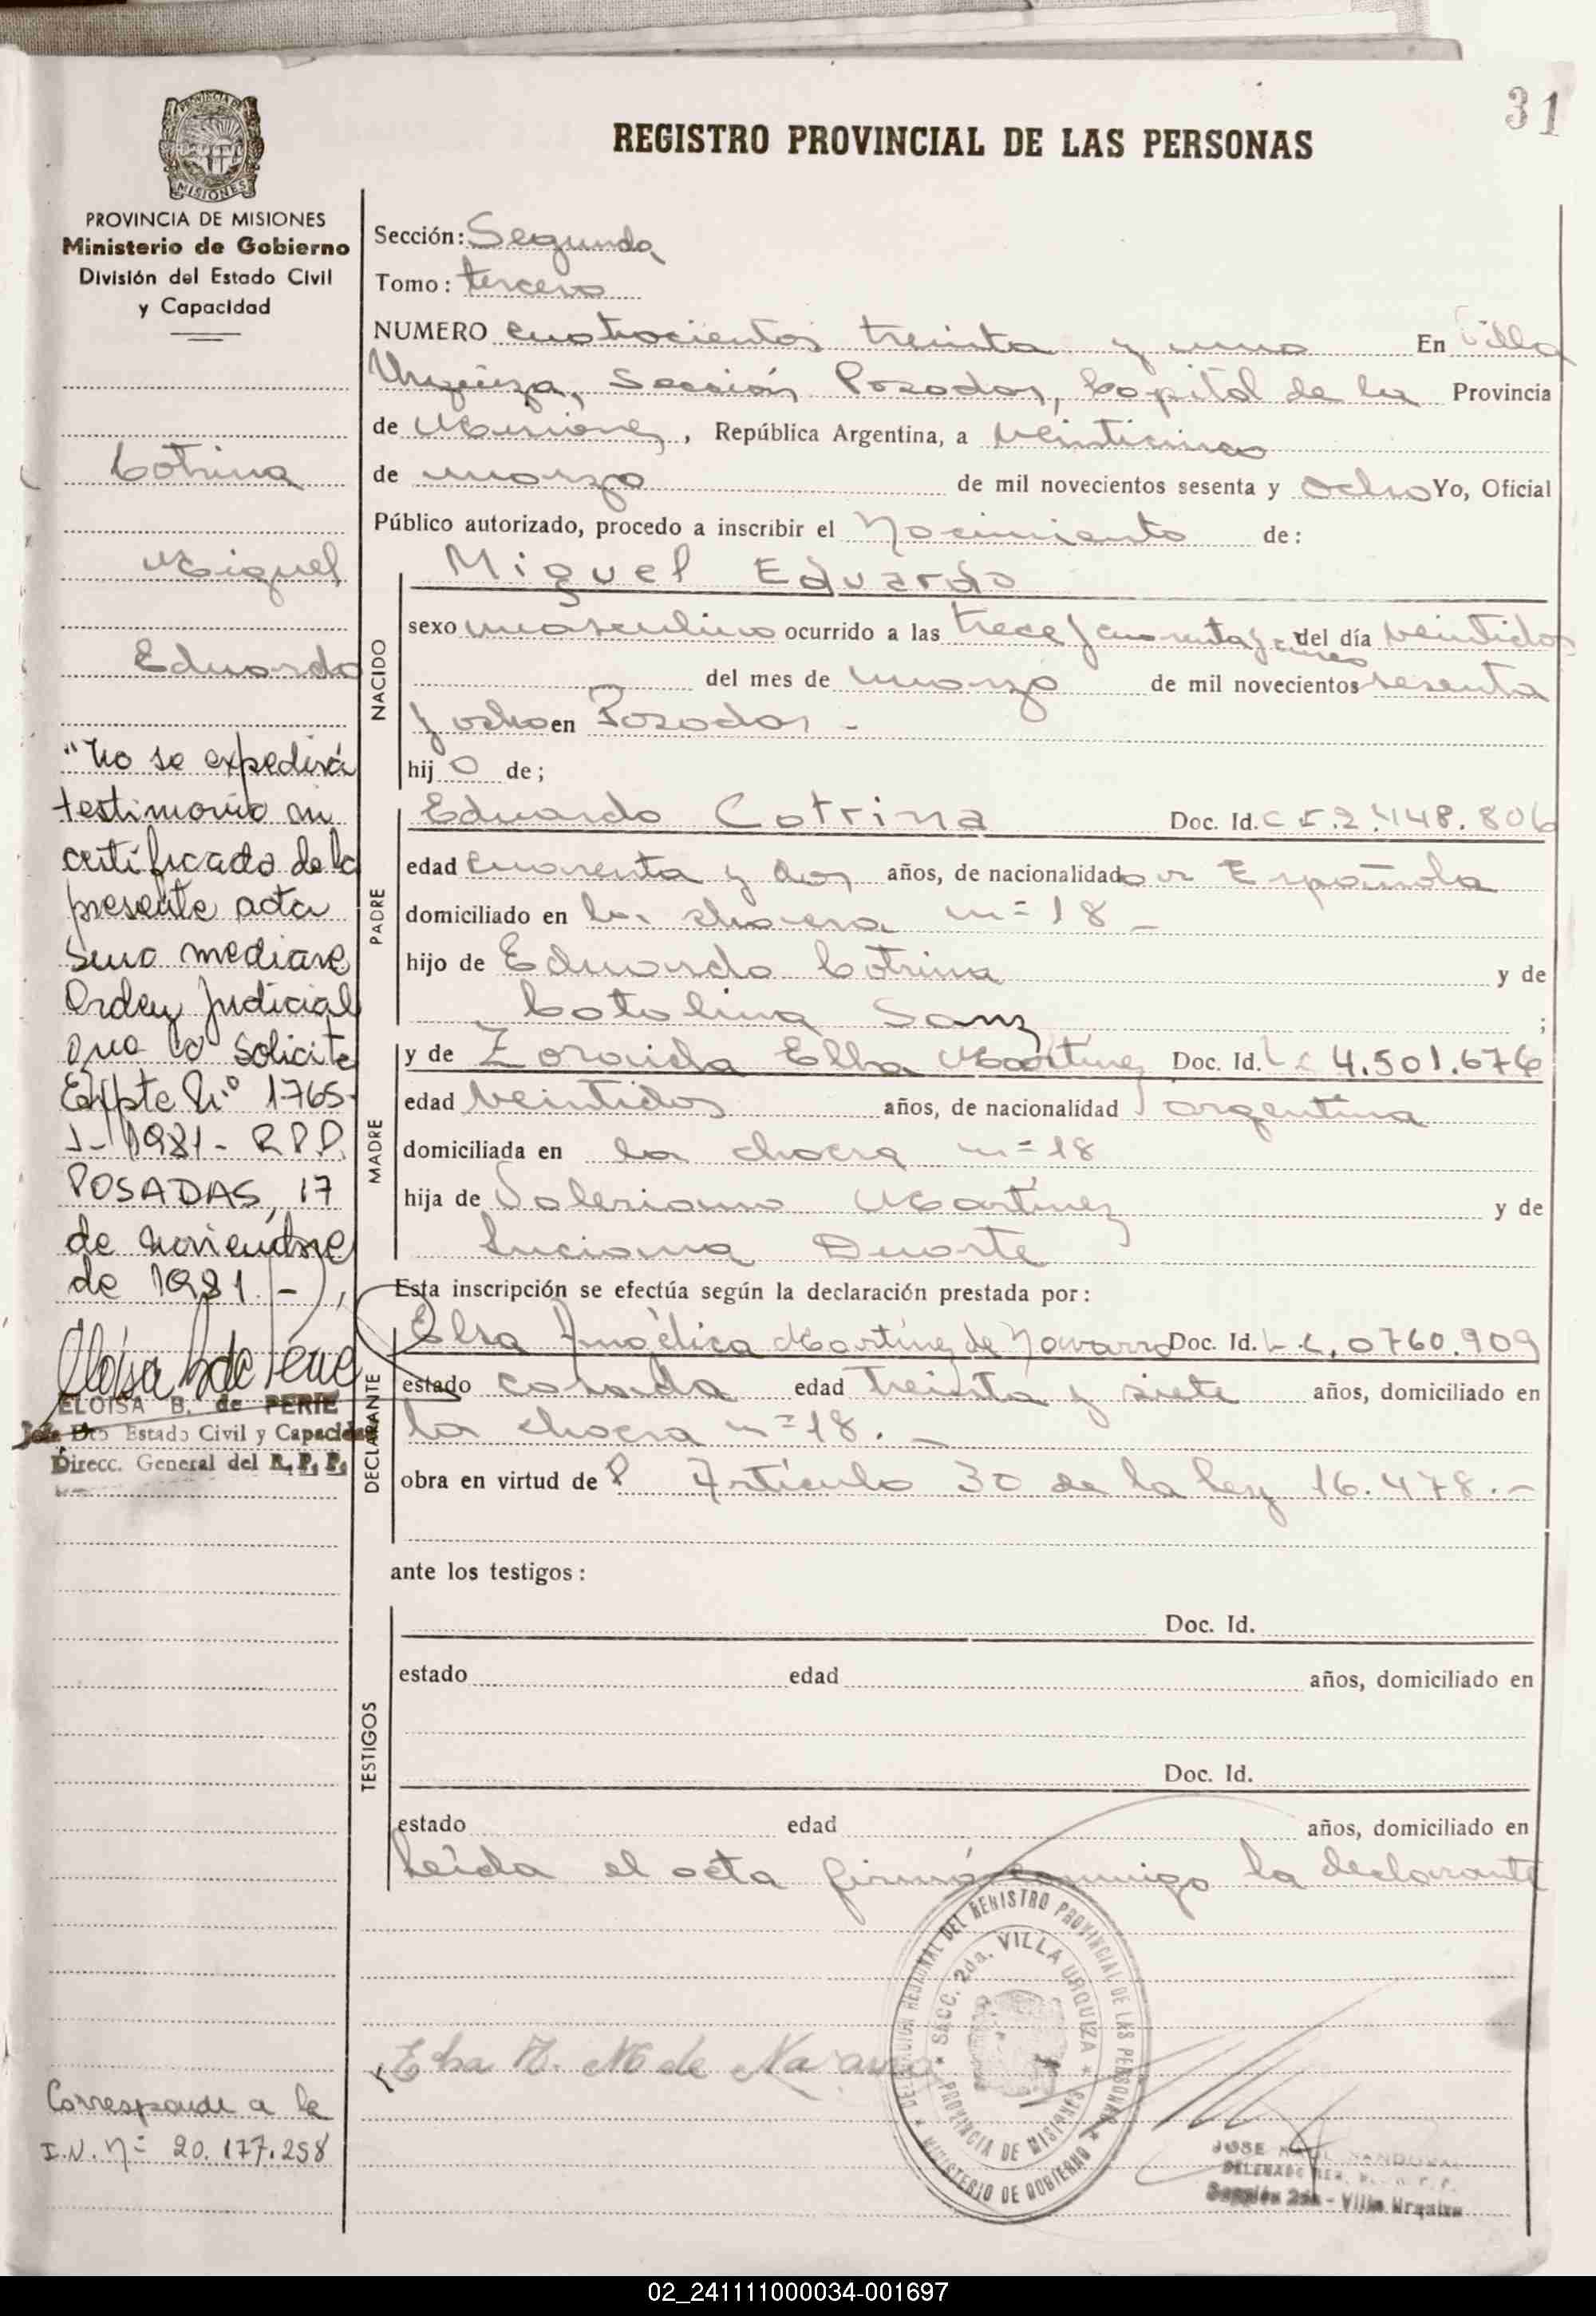 31
REGISTRO PROVINCIAL DE LAS PERSONAS
PROVINCIA DE
MISIONES
PROVINCIA DE MISIONES
Ministerio de Gobierno
División del Estado Civil
y Capacidad
Cotrina
Miguel
Eduardo
"No se expedirá
testimonio ni
certificado de la
presente acta
sino mediare
Orden Judicial
que lo solicite
Expte Nº 1765-
J-1981- R.P.P.
POSADAS, 17
de noviembre
de 1981.-
ELOISA B. de PERIE
Jefe Dto Estado Civil y Capacidad
Direcc. General del R. P. P.
Corresponde a la
I.N. Nº 20.177.258
Sección: Segunda
Tomo: tercero
NUMERO cuatrocientos treinta y uno En Villa
Urquiza, Sección Posadas, Capital de la Provincia
de Misiones, República Argentina, a veinticinco
de marzo de mil novecientos sesenta y ocho Yo, Oficial
Público autorizado, procedo a inscribir el Nacimiento de:
NACIDO
Miguel Eduardo
sexo masculino ocurrido a las trece y cuarenta y cinco del día veintidos
del mes de marzo de mil novecientos sesenta
y ocho en Posadas -
hij o de;
PADRE
Eduardo Cotrina Doc. Id. C I. 2.448.806
edad cuarenta y dos años, de nacionalidad Española
domiciliado en la chacra nº 18 -
hijo de Eduardo Cotrina y de
Catalina Sanz ;
MADRE
y de Zoraida Elba Martinez Doc. Id. L C 4.501.676
edad veintidos años, de nacionalidad argentina
domiciliada en la chacra nº 18
hija de Valeriano Martinez y de
Luciana Duarte
Esta inscripción se efectúa según la declaración prestada por:
DECLARANTE
Elsa Angélica Martinez de Navarro Doc. Id. L.C. 0760.909
estado casada edad treinta y siete años, domiciliado en
la chacra nº 18. -
obra en virtud de Artículo 30 de la ley 16.478.-
ante los testigos:
TESTIGOS
Doc. Id.
estado edad años, domiciliado en
Doc. Id.
estado edad años, domiciliado en
Leída el acta firmó conmigo la declarante
Elsa A. M de Navarro
DELEGACION REGIONAL DEL REGISTRO PROVINCIAL DE LAS PERSONAS
SECC. 2da. VILLA URQUIZA
PROVINCIA DE MISIONES
MINISTERIO DE GOBIERNO
JOSE RAUL SANDOVAL
DELEGADO REG.
Sección 2da - Villa Urquiza
02_241111000034-001697